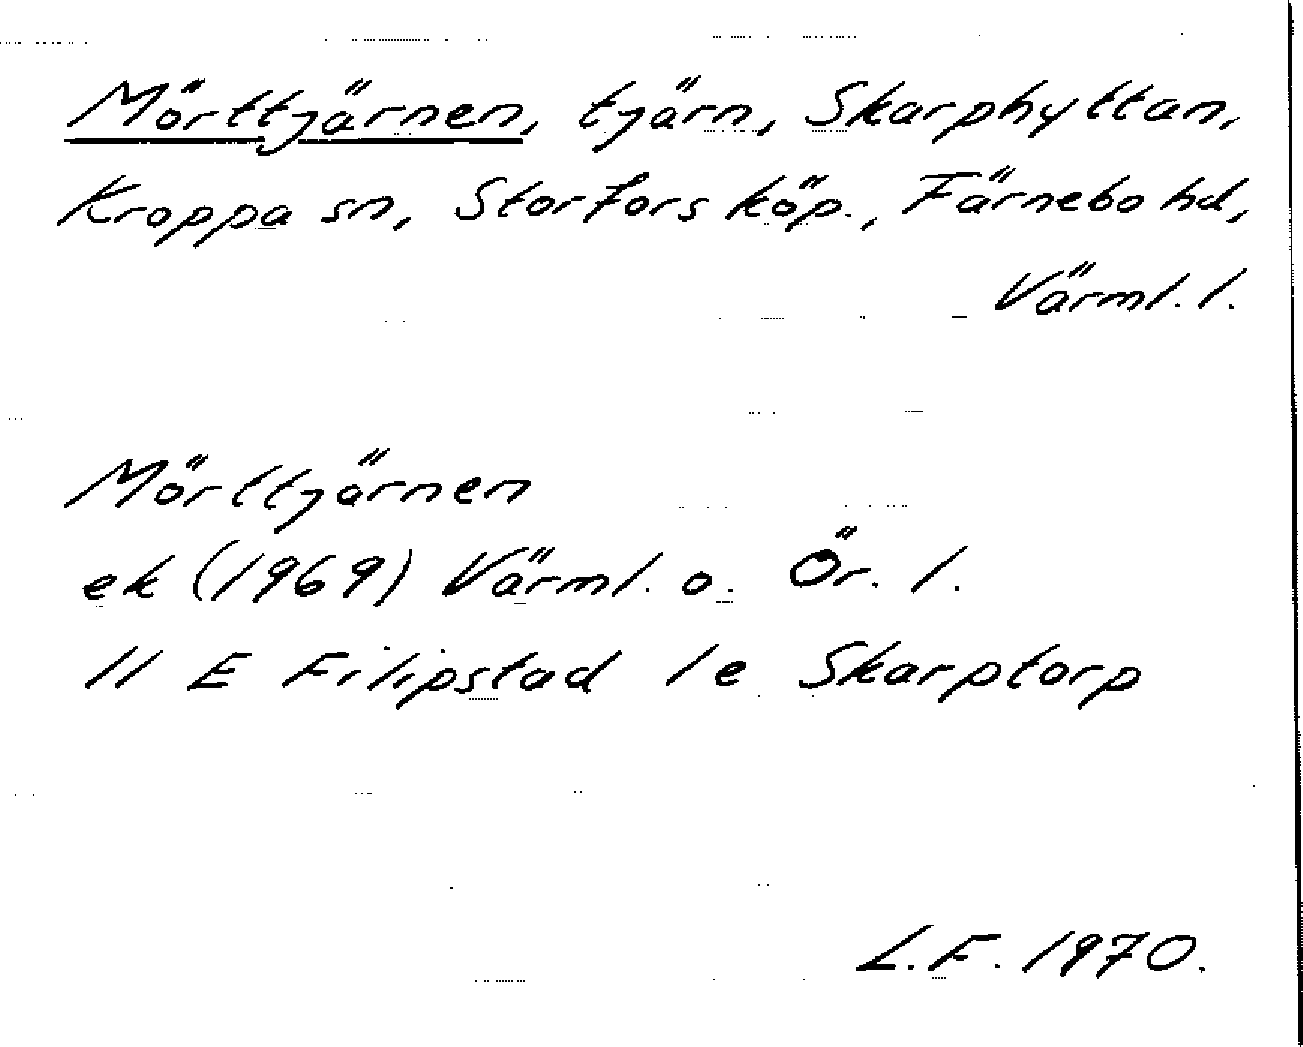 Mörttjärnen, tjärn, Skarphyttan,
Kroppa sn, Storfors köp., Färnebo hd,
Värml. l.
Mörttjärnen
ek (1969) Värml. o. Ör. l.
11 E Filipstad 1e Skarptorp
L.F. 1970.